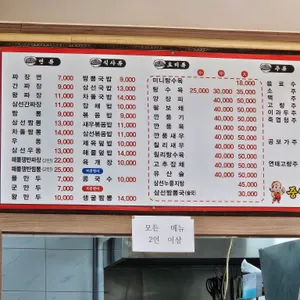 면 류
짜 장 면 7,000
간 짜 장 9,000
쟁 짜 장 11,000
삼선간짜장 11,000
짬 뽕 9,000
삼선짬뽕 11,000
차돌짬뽕 14,000
우 동 9,000
삼선우동 13,000
해물쟁반짜장 22,000
해물쟁반짬뽕 22,000
물 만 두 7,000
군 만 두 7,000
왕 만 두 10,000
식 사 류
짬뽕국밥 9,000
삼선국밥 13,000
차돌국밥 14,000
잡 채 밥 10,000
볶 음 밥 9,000
새우볶음밥 11,000
삼선볶음밥 11,000
제육덮밥 10,000
잡 탕 밥 18,000
유산슬밥 18,000
육 개 장 10,000
콩 국 수 10,000
생굴짬뽕 14,000
요 리 류
소 중 대
미니탕수육 18,000
탕 수 육 25,000 30,000 35,000
양 장 피 40,000 50,000
팔 보 채 40,000 50,000
깐 풍 기 40,000 50,000
깐 풍 육 40,000 50,000
깐풍새우 40,000 50,000
칠리새우 40,000 50,000
칠리탕수육 40,000 50,000
고추잡채 40,000 50,000
유 산 슬 40,000 50,000
삼선누룽지탕 45,000
삼선짬뽕국 30,000
주 류
음 료 수
소 주
맥 주
고 량 주
이과두주
죽엽청주
공보가주
연태고량주
모든 메뉴
2인 이상